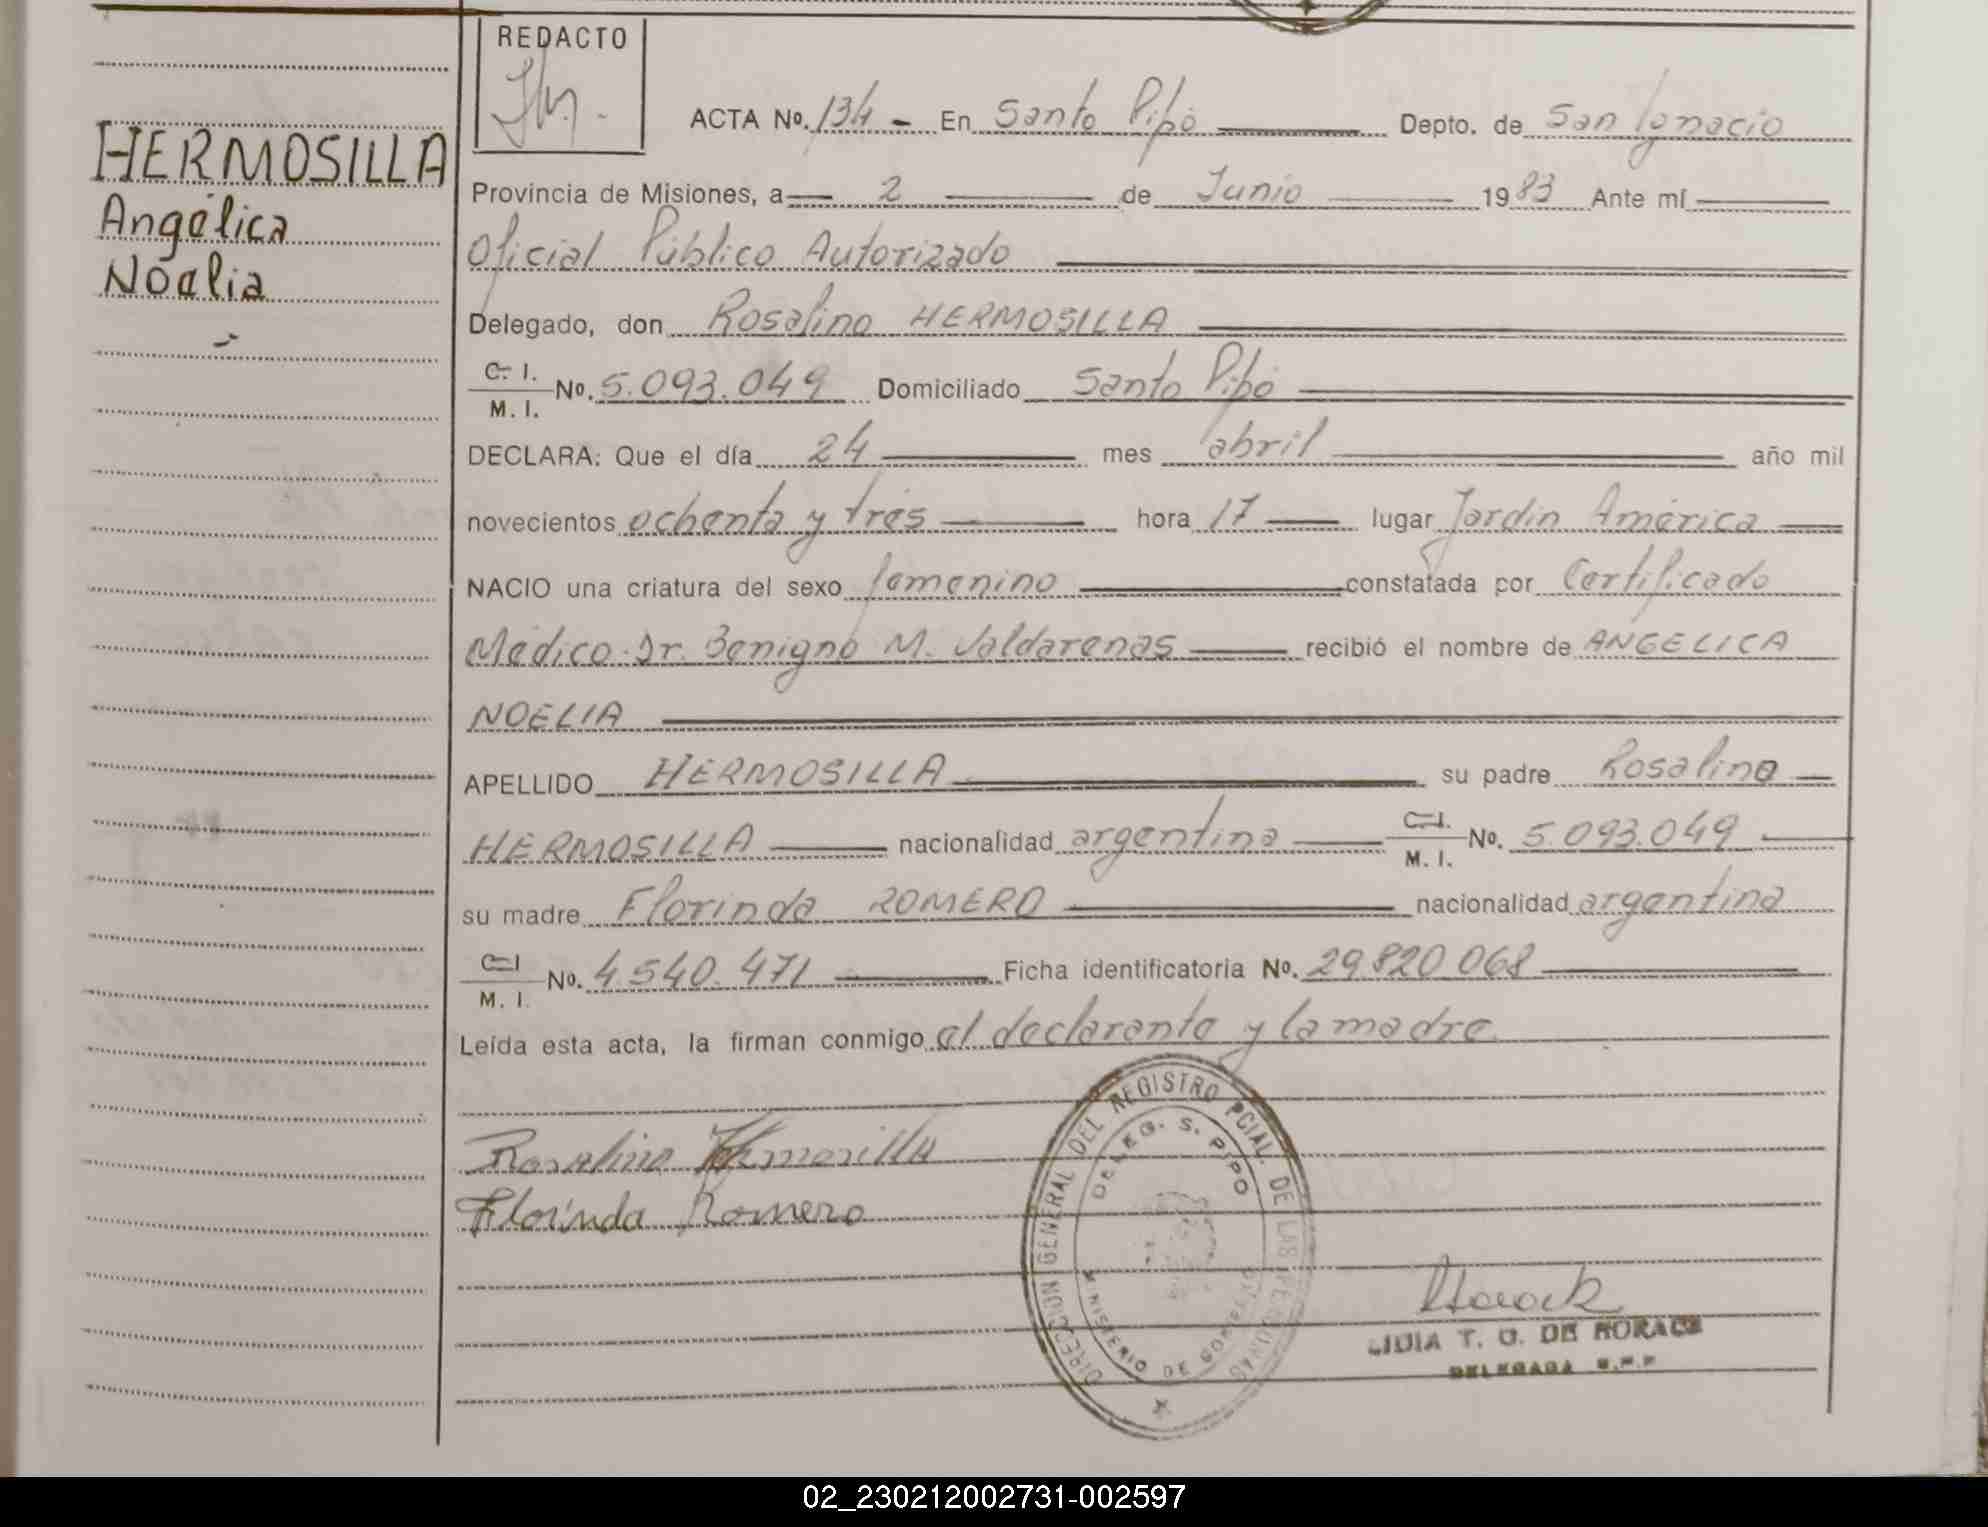 REDACTO
HERMOSILLA
Angélica
Noelia
ACTA Nº. 134 - En Santo Pipó Depto. de San Ignacio
Provincia de Misiones, a 2 de Junio 1983 Ante mí
Oficial Público Autorizado
Delegado, don Rosalino HERMOSILLA
C. I.
M. I. Nº. 5.093.049 Domiciliado Santo Pipó
DECLARA: Que el día 24 mes abril año mil
novecientos ochenta y tres hora 17 lugar Jardín América
NACIO una criatura del sexo femenino constatada por Certificado
Médico Dr. Benigno M. Valdarenas recibió el nombre de ANGELICA
NOELIA
APELLIDO HERMOSILLA su padre Rosalino
HERMOSILLA nacionalidad argentina C. I.
M. I. Nº. 5.093.049
su madre Florinda ROMERO nacionalidad argentina
C. I
M. I. Nº. 4.540.471 Ficha identificatoria Nº. 29.820.068
Leída esta acta, la firman conmigo el declarante y la madre.
Rosalino Hermosilla
Florinda Romero
DIRECCION GENERAL DEL REGISTRO PCIAL. DE LAS PERSONAS
DELEG. S. PIPO
MINISTERIO DE GOBIERNO
LIDIA T. G. DE HORACK
DELEGADA
02_230212002731-002597